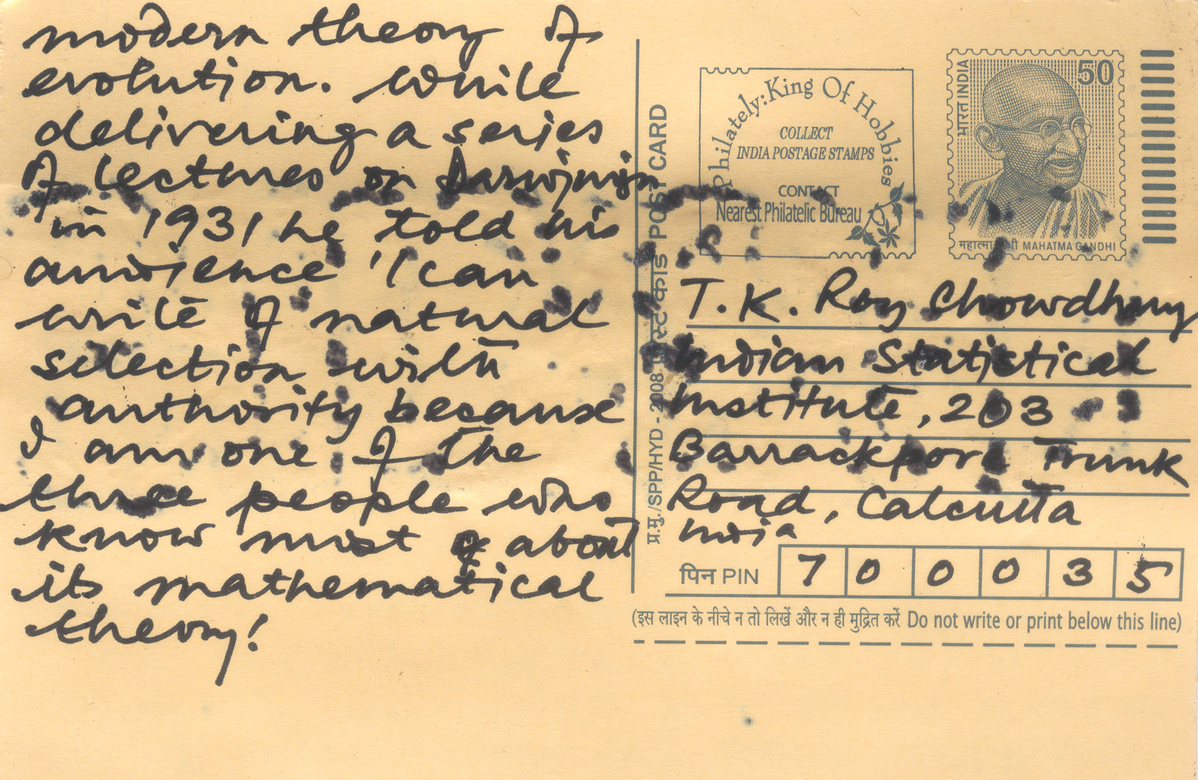 modern theory of
evolution. While
delivering a series
of lectures on Darwinism
in 1931 he told his
audience 'I can
write of natural
selection with
authority because
I am one of the
three people who
know most about
its mathematical
theory!
प्र.मु./SPP/HYD - 2008 पोस्ट कार्ड POST CARD
Philately: King Of Hobbies
COLLECT
INDIA POSTAGE STAMPS
CONTACT
Nearest Philatelic Bureau
भारत INDIA
50
महात्मा गांधी MAHATMA GANDHI
T. K. Roy Chowdhury
Indian Statistical
Institute, 203
Barrackpore Trunk
Road, Calcutta
India
पिन PIN 7 0 0 0 3 5
(इस लाइन के नीचे न तो लिखें और न ही मुद्रित करें Do not write or print below this line)